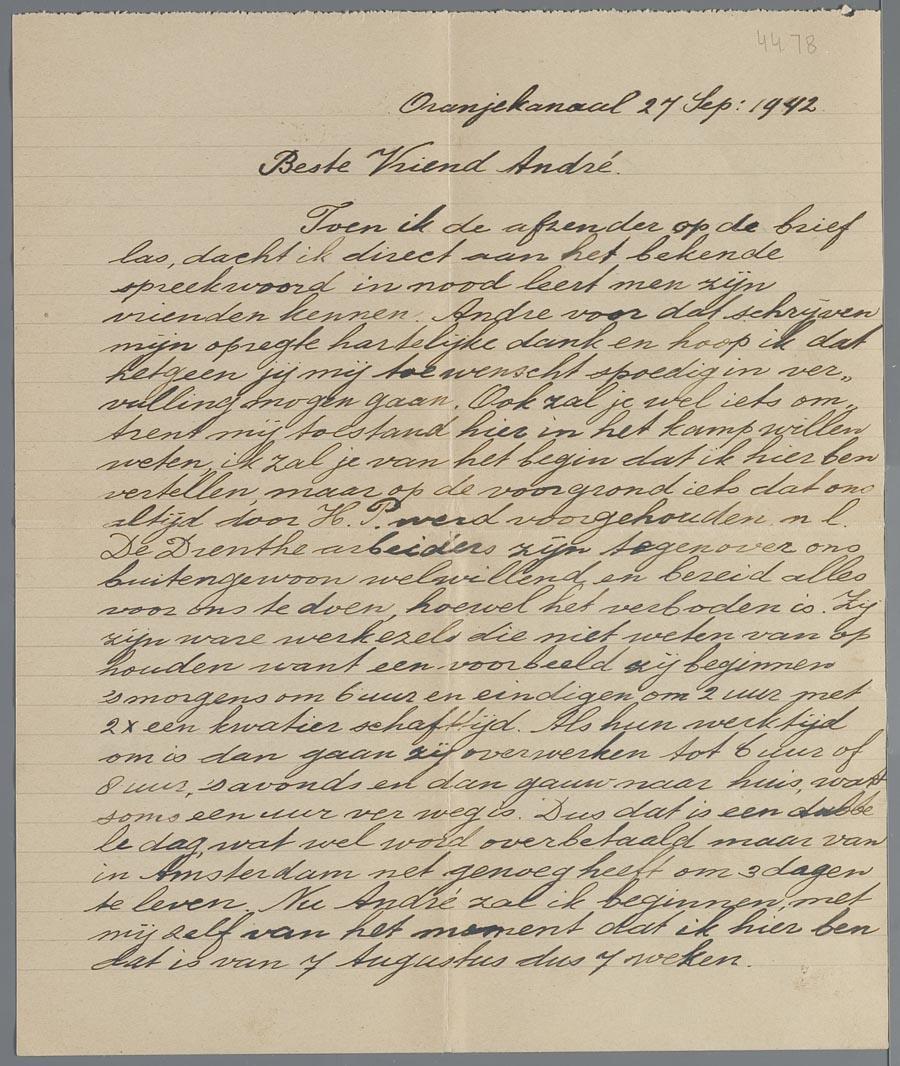 4478
Oranjekanaal 27 Sep: 1942
Beste Vriend André.
Toen ik de afzender op de brief
las, dacht ik direct aan het bekende
spreekwoord in nood leert men zijn
vrienden kennen. Andre voor dat schrijven
mijn opregte hartelijke dank en hoop ik dat
hetgeen jij mij toewenscht spoedig in ver„
vulling mogen gaan. Ook zal je wel iets om„
trent mij toestand hier in het kamp willen
weten, ik zal je van het begin dat ik hier ben
vertellen, maar op de voorgrond iets dat ons
altijd door H. P. werd voorgehouden n l.
De Drenthe arbeiders zijn tegenover ons
buitengewoon welwillend, en bereid alles
voor ons te doen, hoewel het verboden is. Zij
zijn ware werkezels die niet weten van op
houden want een voorbeeld zij beginnen
's morgens om 6 uur en eindigen om 2 uur met
2x een kwatier schafttijd. Als hun werktijd
om is dan gaan zij overwerken tot 6 uur of
8 uur, 's avonds en dan gauw naar huis, wat
soms een uur ver weg is. Dus dat is een dubbe
le dag, wat wel word overbetaald maar van
in Amsterdam net genoeg heeft om 3 dagen
te leven. Nu André zal ik beginnen, met
mij zelf van het moment dat ik hier ben
dat is van 7 Augustus dus 7 weken.